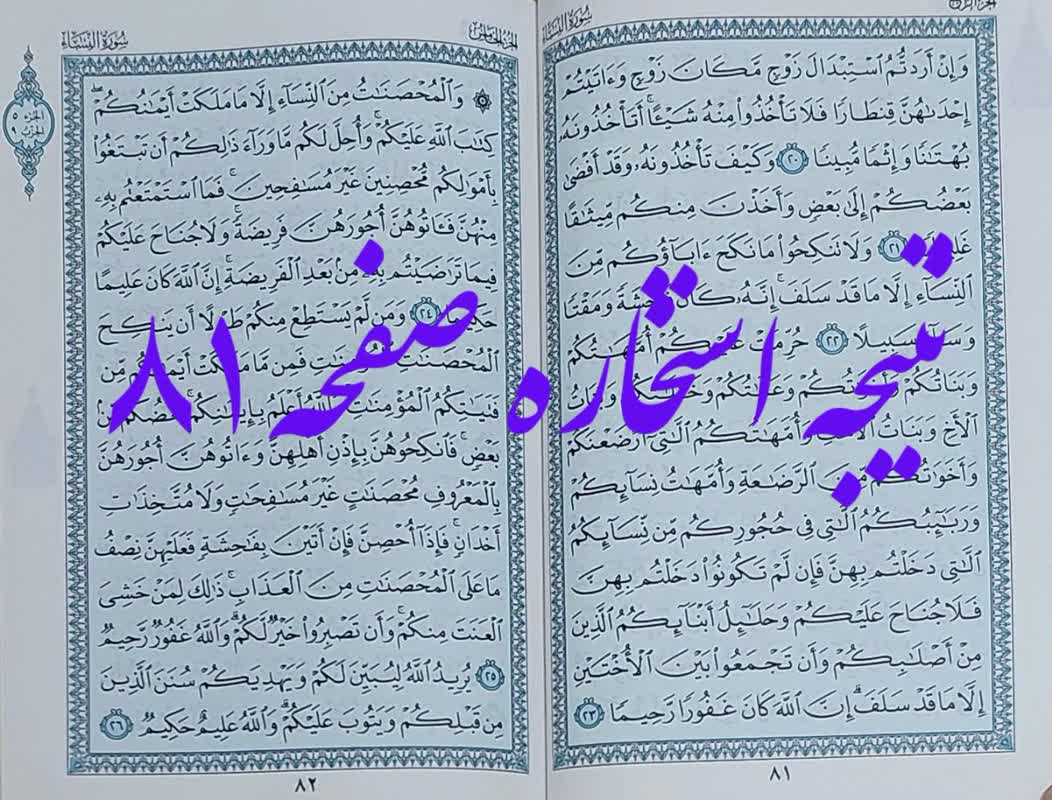 الجزء الرابع
سورة النساء
وَإِنْ أَرَدتُّمُ ٱسْتِبْدَالَ زَوْجٍ مَّكَانَ زَوْجٍ وَءَاتَيْتُمْ
إِحْدَىٰهُنَّ قِنطَارًا فَلَا تَأْخُذُوا۟ مِنْهُ شَيْـًٔا ۚ أَتَأْخُذُونَهُۥ
بُهْتَـٰنًا وَإِثْمًا مُّبِينًا ٢٠ وَكَيْفَ تَأْخُذُونَهُۥ وَقَدْ أَفْضَىٰ
بَعْضُكُمْ إِلَىٰ بَعْضٍ وَأَخَذْنَ مِنكُم مِّيثَـٰقًا
غَلِيظًا ٢١ وَلَا تَنكِحُوا۟ مَا نَكَحَ ءَابَآؤُكُم مِّنَ
ٱلنِّسَآءِ إِلَّا مَا قَدْ سَلَفَ ۚ إِنَّهُۥ كَانَ فَـٰحِشَةً وَمَقْتًا
وَسَآءَ سَبِيلًا ٢٢ حُرِّمَتْ عَلَيْكُمْ أُمَّهَـٰتُكُمْ
وَبَنَاتُكُمْ وَأَخَوَٰتُكُمْ وَعَمَّـٰتُكُمْ وَخَـٰلَـٰتُكُمْ وَبَنَاتُ
ٱلْأَخِ وَبَنَاتُ ٱلْأُخْتِ وَأُمَّهَـٰتُكُمُ ٱلَّـٰتِىٓ أَرْضَعْنَكُمْ
وَأَخَوَٰتُكُم مِّنَ ٱلرَّضَـٰعَةِ وَأُمَّهَـٰتُ نِسَآئِكُمْ
وَرَبَـٰٓئِبُكُمُ ٱلَّـٰتِى فِى حُجُورِكُم مِّن نِّسَآئِكُمُ
ٱلَّـٰتِى دَخَلْتُم بِهِنَّ فَإِن لَّمْ تَكُونُوا۟ دَخَلْتُم بِهِنَّ
فَلَا جُنَاحَ عَلَيْكُمْ وَحَلَـٰٓئِلُ أَبْنَآئِكُمُ ٱلَّذِينَ
مِنْ أَصْلَـٰبِكُمْ وَأَن تَجْمَعُوا۟ بَيْنَ ٱلْأُخْتَيْنِ
إِلَّا مَا قَدْ سَلَفَ ۗ إِنَّ ٱللَّهَ كَانَ غَفُورًا رَّحِيمًا ٢٣
٨١
الجزء الخامس
سورة النساء
الجزء ٥
الحزب ٩
۞ وَٱلْمُحْصَنَـٰتُ مِنَ ٱلنِّسَآءِ إِلَّا مَا مَلَكَتْ أَيْمَـٰنُكُمْ ۖ
كِتَـٰبَ ٱللَّهِ عَلَيْكُمْ ۚ وَأُحِلَّ لَكُم مَّا وَرَآءَ ذَٰلِكُمْ أَن تَبْتَغُوا۟
بِأَمْوَٰلِكُم مُّحْصِنِينَ غَيْرَ مُسَـٰفِحِينَ ۚ فَمَا ٱسْتَمْتَعْتُم بِهِۦ
مِنْهُنَّ فَـَٔاتُوهُنَّ أُجُورَهُنَّ فَرِيضَةً ۚ وَلَا جُنَاحَ عَلَيْكُمْ
فِيمَا تَرَٰضَيْتُم بِهِۦ مِنۢ بَعْدِ ٱلْفَرِيضَةِ ۚ إِنَّ ٱللَّهَ كَانَ عَلِيمًا
حَكِيمًا ٢٤ وَمَن لَّمْ يَسْتَطِعْ مِنكُمْ طَوْلًا أَن يَنكِحَ
ٱلْمُحْصَنَـٰتِ ٱلْمُؤْمِنَـٰتِ فَمِن مَّا مَلَكَتْ أَيْمَـٰنُكُم مِّن
فَتَيَـٰتِكُمُ ٱلْمُؤْمِنَـٰتِ ۚ وَٱللَّهُ أَعْلَمُ بِإِيمَـٰنِكُم ۚ بَعْضُكُم مِّنۢ
بَعْضٍ ۚ فَٱنكِحُوهُنَّ بِإِذْنِ أَهْلِهِنَّ وَءَاتُوهُنَّ أُجُورَهُنَّ
بِٱلْمَعْرُوفِ مُحْصَنَـٰتٍ غَيْرَ مُسَـٰفِحَـٰتٍ وَلَا مُتَّخِذَٰتِ
أَخْدَانٍ ۚ فَإِذَآ أُحْصِنَّ فَإِنْ أَتَيْنَ بِفَـٰحِشَةٍ فَعَلَيْهِنَّ نِصْفُ
مَا عَلَى ٱلْمُحْصَنَـٰتِ مِنَ ٱلْعَذَابِ ۚ ذَٰلِكَ لِمَنْ خَشِىَ
ٱلْعَنَتَ مِنكُمْ ۚ وَأَن تَصْبِرُوا۟ خَيْرٌ لَّكُمْ ۗ وَٱللَّهُ غَفُورٌ رَّحِيمٌ
٢٥ يُرِيدُ ٱللَّهُ لِيُبَيِّنَ لَكُمْ وَيَهْدِيَكُمْ سُنَنَ ٱلَّذِينَ
مِن قَبْلِكُمْ وَيَتُوبَ عَلَيْكُمْ ۗ وَٱللَّهُ عَلِيمٌ حَكِيمٌ ٢٦
٨٢
نتیجه استخاره صفحه ۸۱